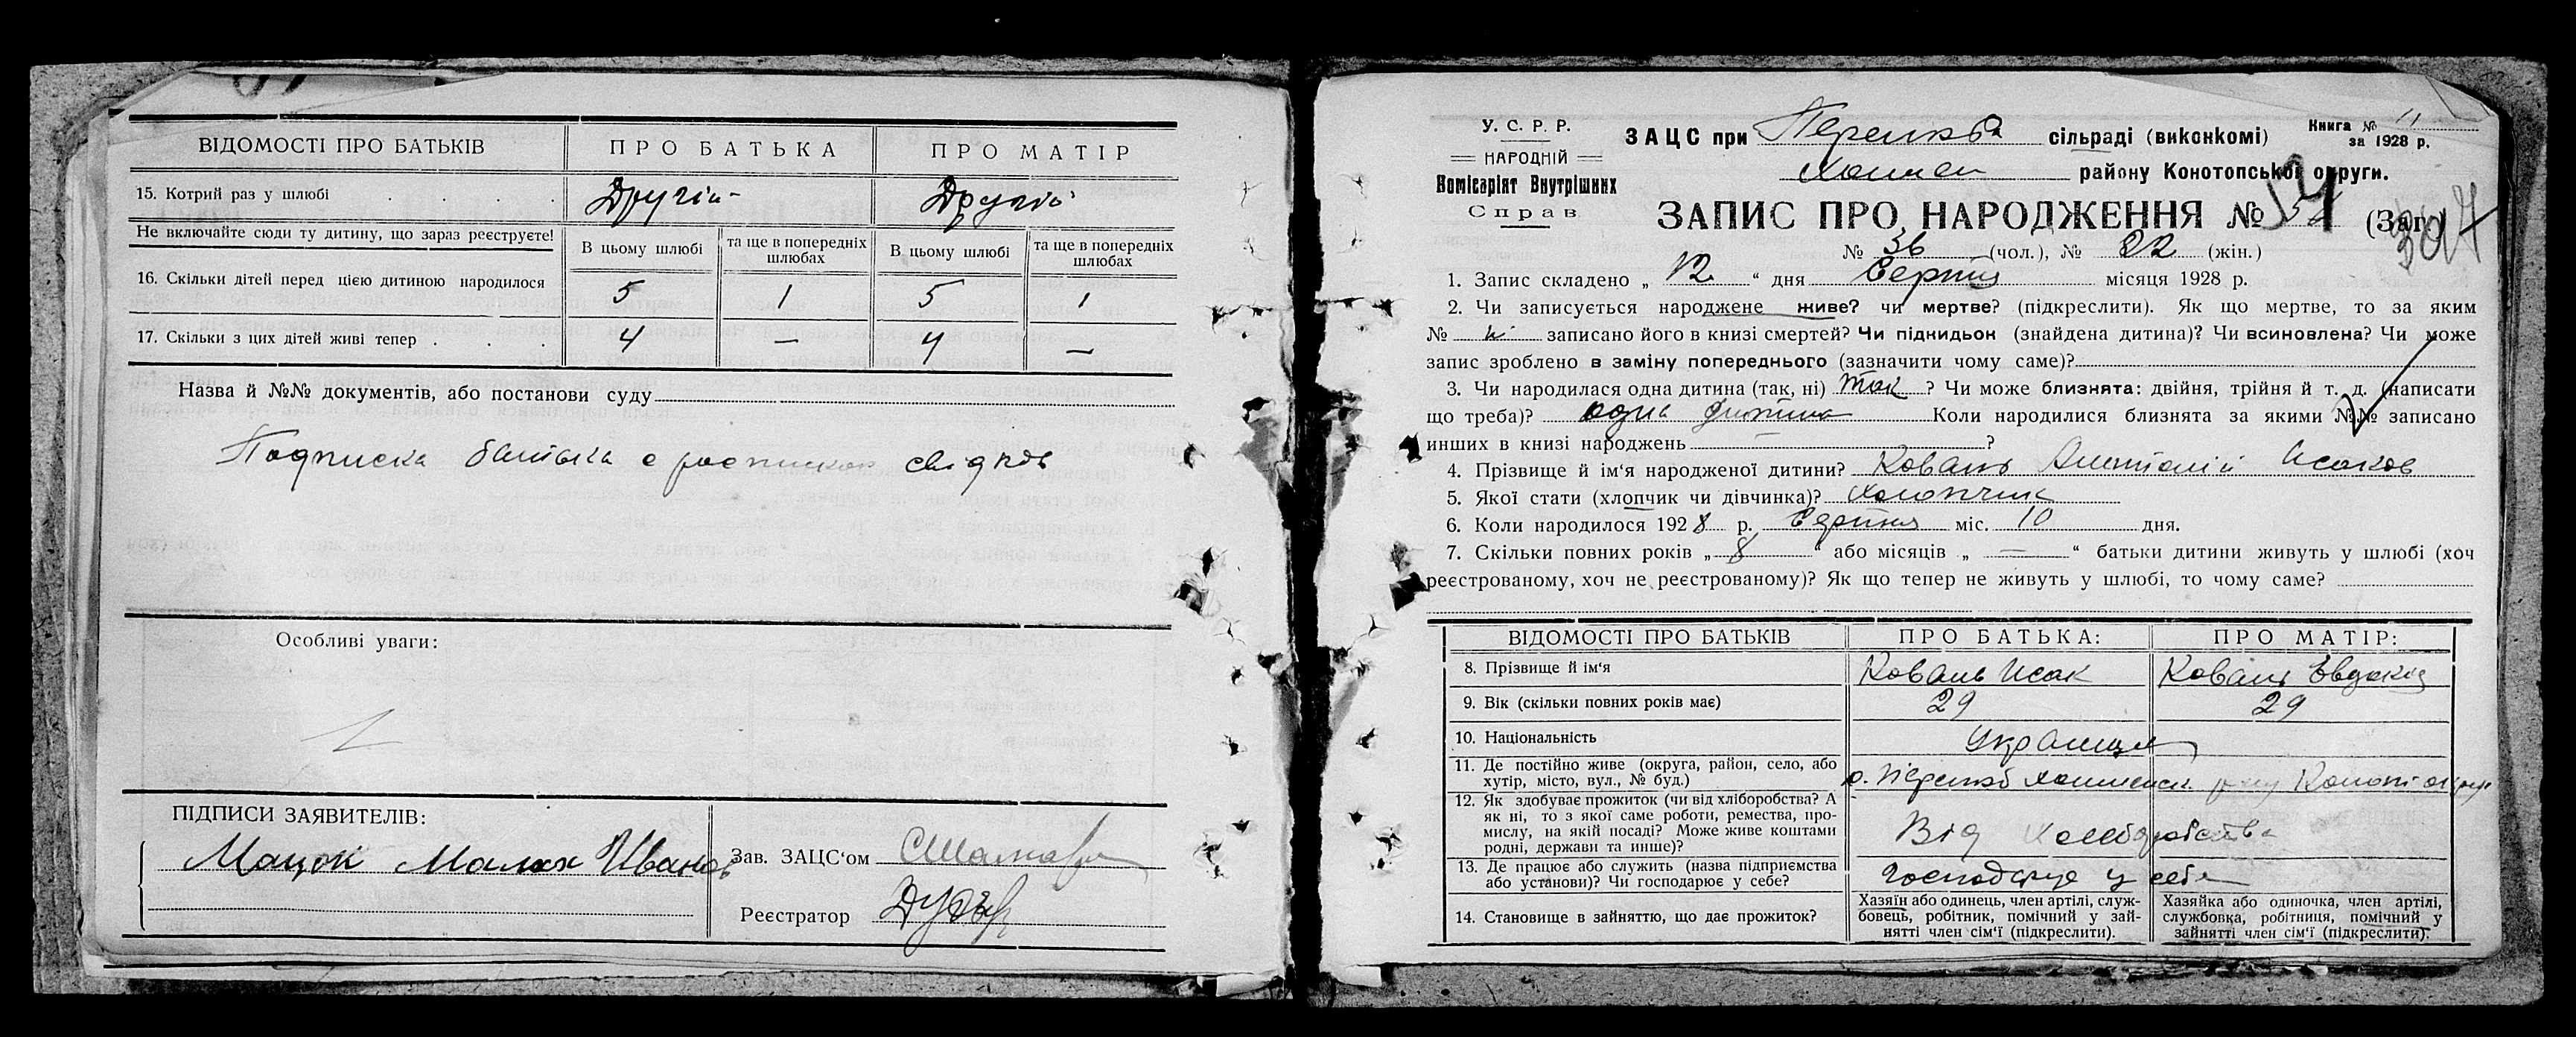 ВІДОМОСТІ ПРО БАТЬКІВ ПРО БАТЬКА ПРО МАТІР
15. Котрий раз у шлюбі Другій Другій
Не включайте сюди ту дитину, що зараз реєструєте!
В цьому шлюбі та ще в попередніх шлюбах В цьому шлюбі та ще в попередніх шлюбах
16. Скільки дітей перед цією дитиною народилося 5 1 5 1
17. Скільки з цих дітей живі тепер 4 — 4 —
Назва й №№ документів, або постанови суду
Подписка батька с роспискою свідків
Особливі уваги:
ПІДПИСИ ЗАЯВИТЕЛІВ:
Мацок Иванов
Зав. ЗАЦС'ом
Реєстратор
У. С. Р. Р.
НАРОДНІЙ
Комісаріят Внутрішних
Справ
ЗАЦС при сільраді (виконкомі)
Книга № 11
за 1928 р.
району Конотопської округи.
ЗАПИС ПРО НАРОДЖЕННЯ № 54 (Заг.)
№ 36 (чол.), № 22 (жін.)
1. Запис складено „ 12 “ дня Серпня місяця 1928 р.
2. Чи записується народжене живе? чи мертве? (підкреслити). Як що мертве, то за яким
№ записано його в книзі смертей? Чи підкидьок (знайдена дитина)? Чи всиновлена? Чи може
запис зроблено в заміну попереднього (зазначити чому саме)?
3. Чи народилася одна дитина (так, ні) так ? Чи може близнята: двійня, трійня й т. д. (написати
що треба)? одна дитина Коли народилися близнята за якими №№ записано
инших в книзі народжень — ?
4. Прізвище й ім'я народженої дитини? Коваль Анатолій Исаков
5. Якої стати (хлопчик чи дівчинка)? Хлопчик
6. Коли народилося 1928 р. Серпня міс. 10 дня.
7. Скільки повних років „ 8 “ або місяців „ — “ батьки дитини живуть у шлюбі (хоч
реєстрованому, хоч не реєстрованому)? Як що тепер не живуть у шлюбі, то чому саме?
ВІДОМОСТІ ПРО БАТЬКІВ ПРО БАТЬКА: ПРО МАТІР:
8. Прізвище й ім'я Коваль Исак Коваль Евдокія
9. Вік (скільки повних років має) 29 29
10. Національність Українці
11. Де постійно живе (округа, район, село, або
хутір, місто, вул., № буд.)
12. Як здобуває прожиток (чи від хліборобства? А
як ні, то з якої саме роботи, ремества, про-
мислу, на якій посаді? Може живе коштами
родні, держави та инше)?
Від хліборобства
13. Де працює або служить (назва підприємства
або установи)? Чи господарює у себе?
Господарує у себе
14. Становище в зайняттю, що дає прожиток?
Хазяїн або одинець, член артілі, служ-
бовець, робітник, помічний у зай-
нятті член сім'ї (підкреслити).
Хазяйка або одиночка, член артілі,
службовка, робітниця, помічний у
зайнятті член сім'ї (підкреслити).